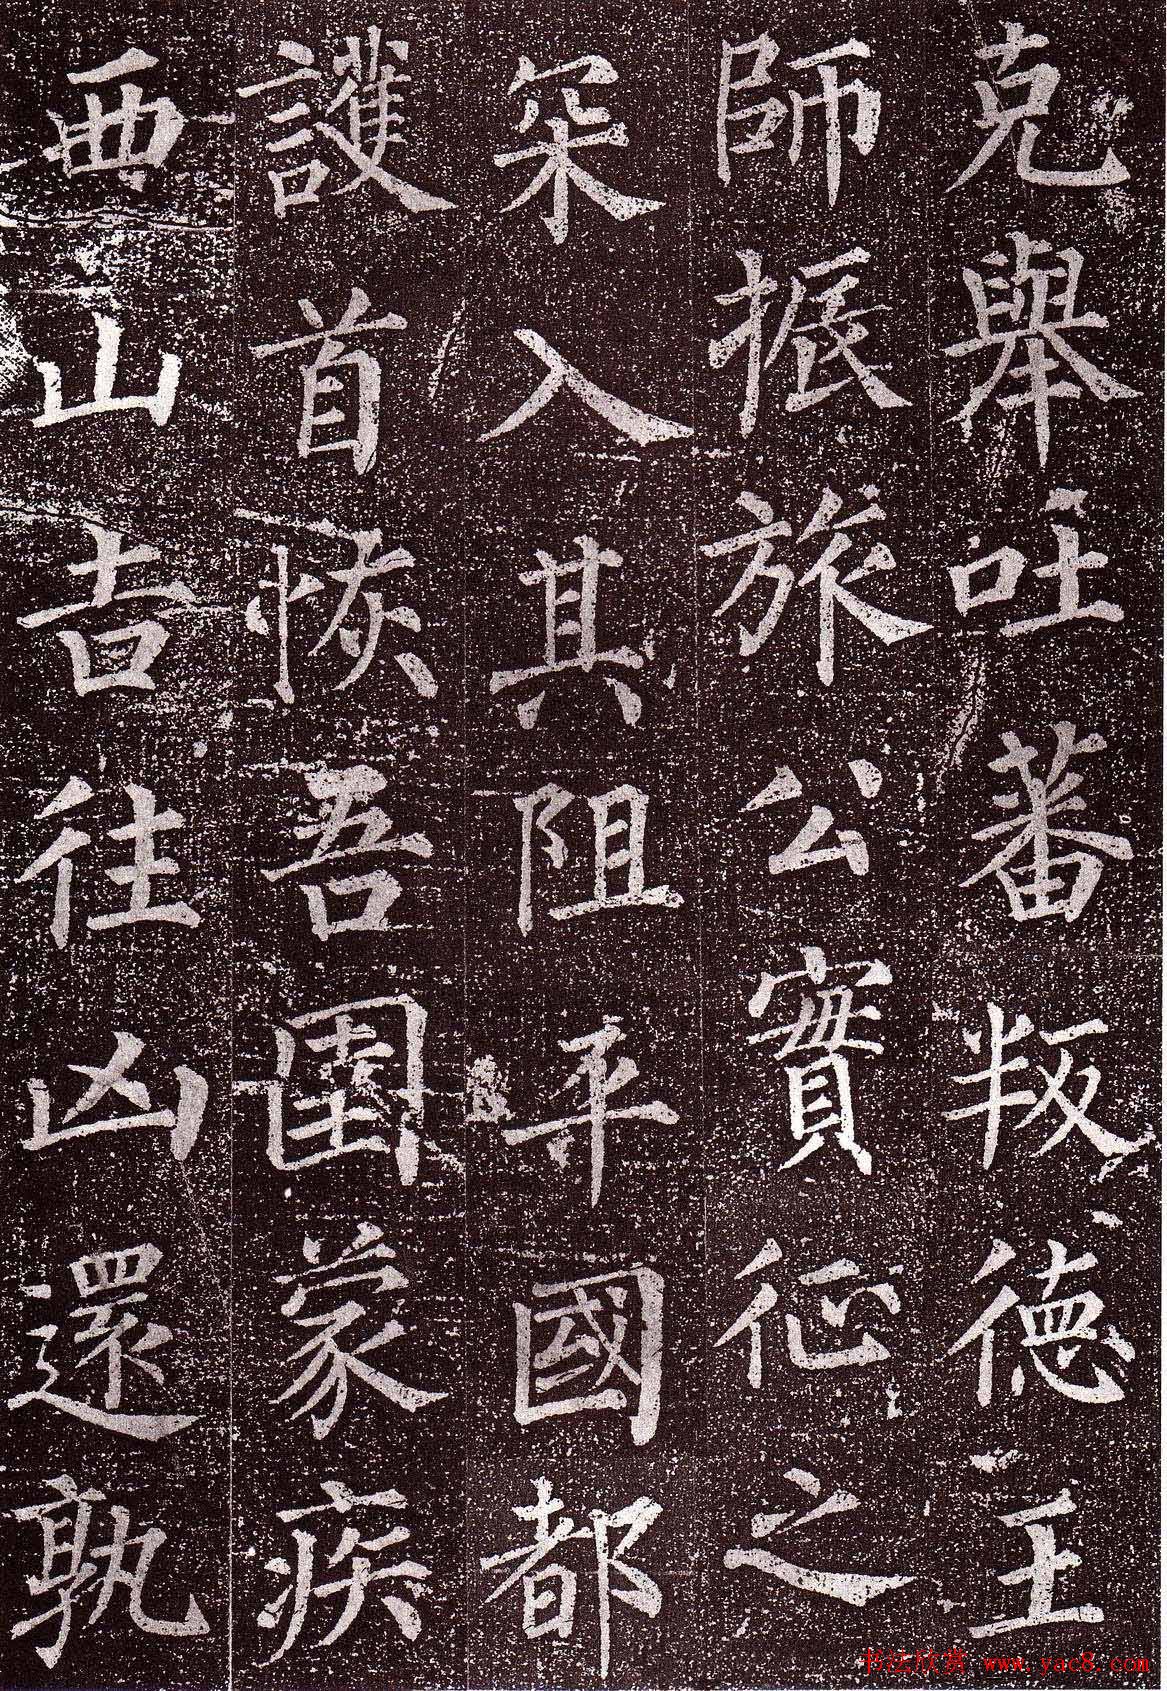 克舉吐蕃叛德王
師振旅公實征之
罙入其阻平國都
護首恢吾圉蒙疾
西山吉往凶還孰
书法欣赏 www.yac8.com